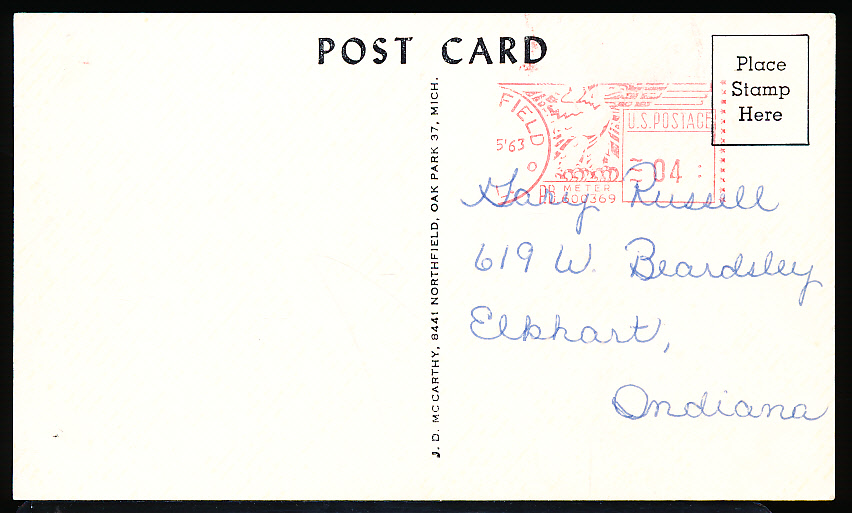 POST CARD
Place
Stamp
Here
FIELD
5'63
U.S. POSTAGE
04
METER
600369
J. D. MCCARTHY, 8441 NORTHFIELD, OAK PARK 37, MICH.
Gary Russell
619 W. Beardsley
Elkhart,
Indiana